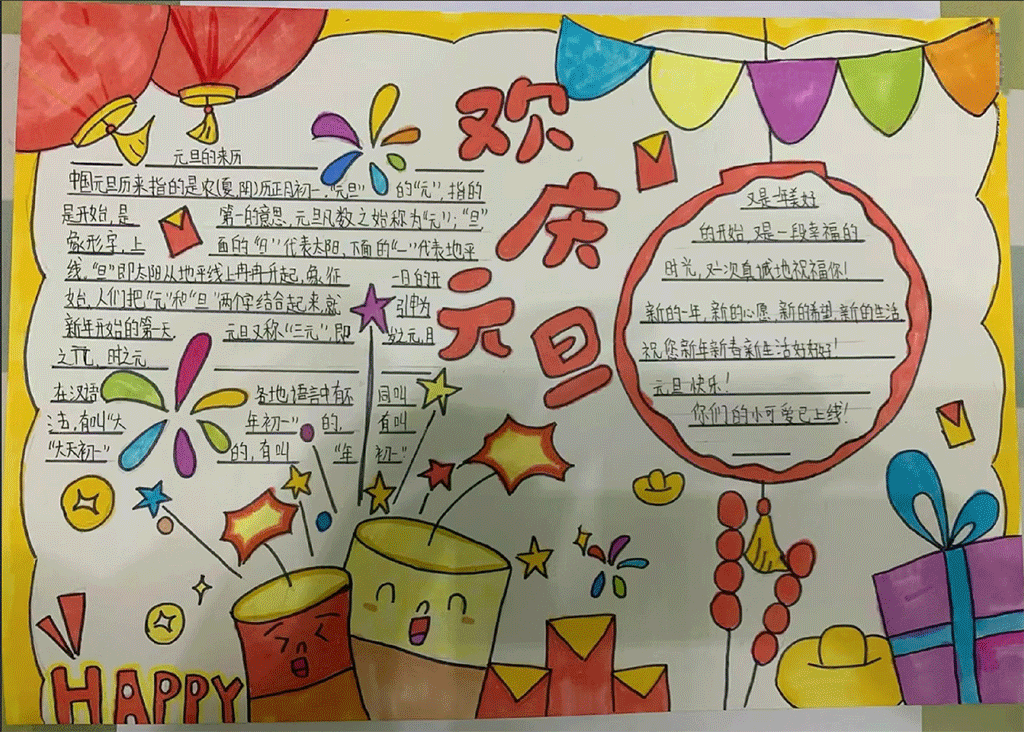 元旦的来历
中国元旦历来指的是农(夏,阴)历正月初一,“元旦”的“元”,指的
是开始,是第一的意思,元旦凡数之始称为“元”;“旦”
象形字,上面的“日”代表太阳,下面的“一”代表地平
线,“旦”即太阳从地平线上冉冉升起,象征一日的开
始,人们把“元”和“旦”两个字结合起来,就引申为
新年开始的第一天,元旦又称“三元”,即岁之元,月
之元,时之元
在汉语各地语言中有不同叫
法,有叫“大年初一”的,有叫
“大天初一”的,有叫“年初一”
欢庆元旦
又是一年美好
的开始,又是一段幸福的
时光,再次真诚地祝福你!
新的一年,新的心愿,新的希望,新的生活
祝您新年新春新生活好好好!
元旦快乐!
你们的小可爱已上线!
HAPPY